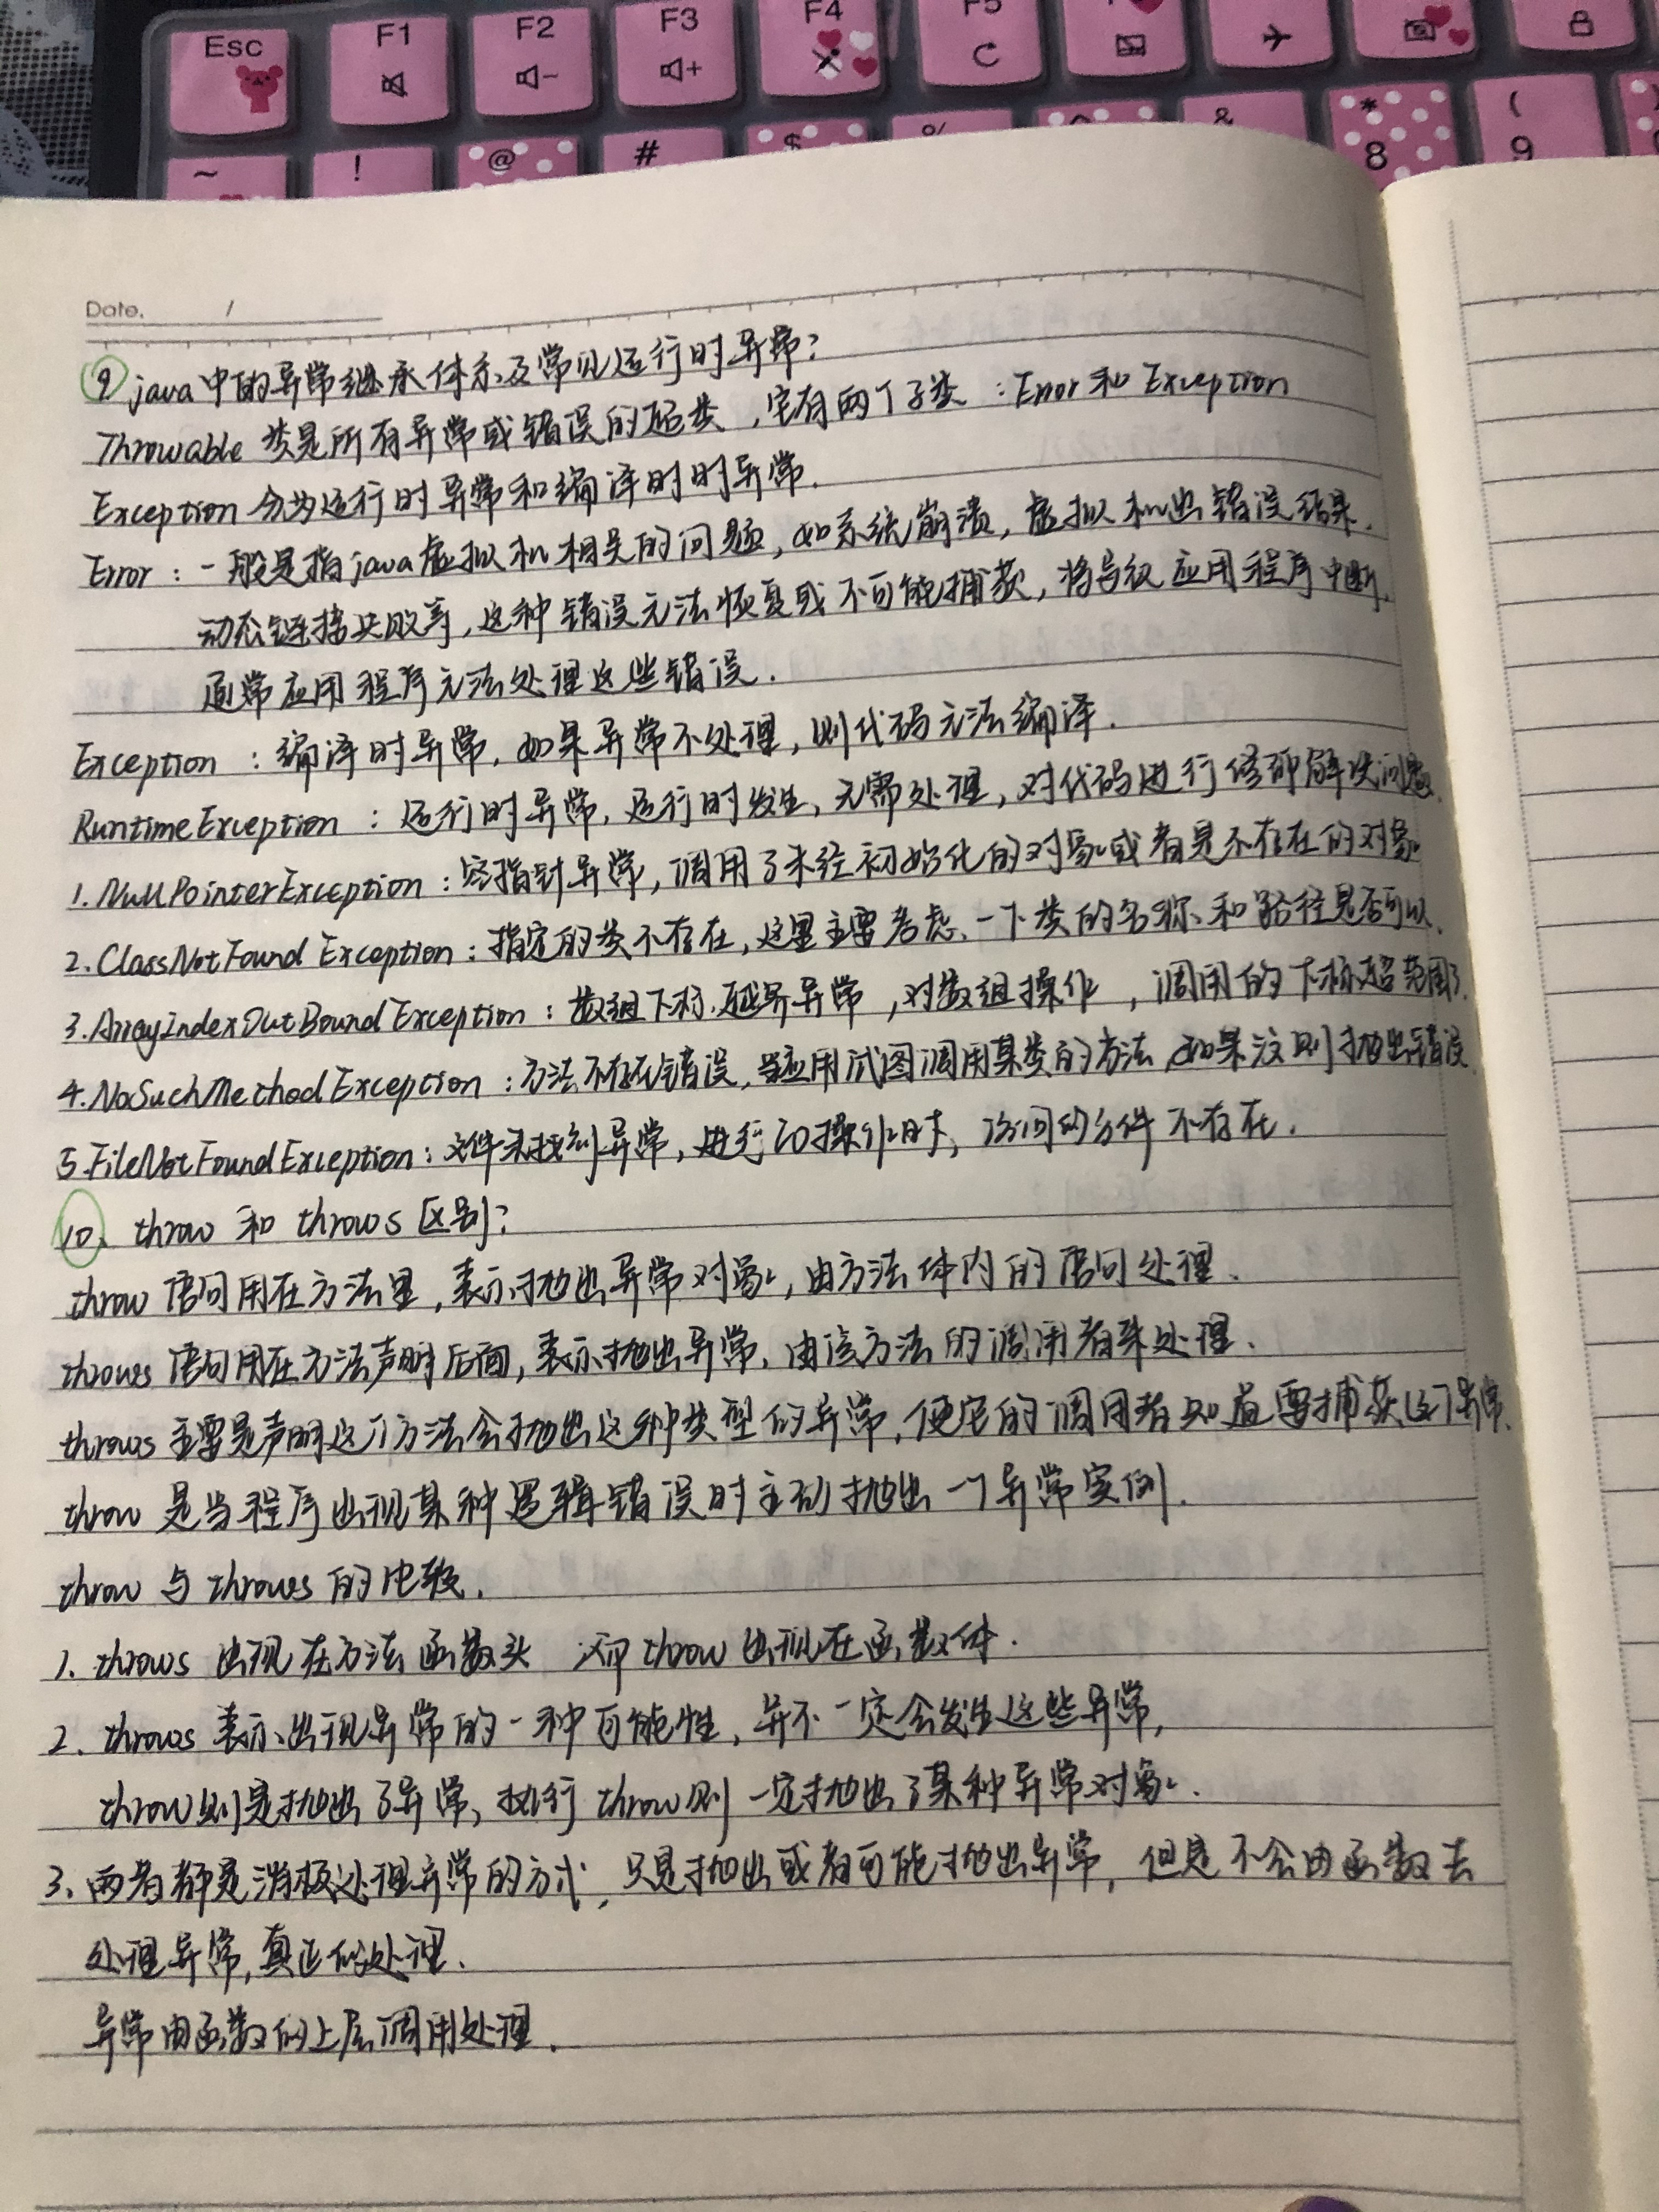 Esc F1 F2 F3 F4 F5
~ ! @ # $ % & * 8 ( 9
Date. /
9 java中的异常继承体系及常见运行时异常?
Throwable 类是所有异常或错误的超类,它有两个子类:Error和Exception
Exception分为运行时异常和编译时时异常.
Error:一般是指java虚拟机相关的问题,如系统崩溃,虚拟机出错误结果.
动态链接失败等,这种错误无法恢复或不可能捕获,将导致应用程序中断.
通常应用程序无法处理这些错误.
Exception:编译时异常,如果异常不处理,则代码无法编译.
RuntimeException:运行时异常,运行时发生,无需处理,对代码进行修改解决问题.
1.NullPointerException:空指针异常,调用了未经初始化的对象或者是不存在的对象
2.ClassNotFound Exception:指定的类不存在,这里主要考虑一下类的名称和路径是否可以.
3.ArrayIndexOutBoundException:数组下标越界异常,对数组操作,调用的下标超范围了.
4.NoSuchMethodException:方法不存在错误,当应用试图调用某类的方法,如果没则抛出错误
5.FileNotFoundException:文件未找到异常,进行IO操作时,访问的文件不存在.
10、throw 和 throws区别?
throw语句用在方法里,表示抛出异常对象,由方法体内的语句处理.
throws语句用在方法声明后面,表示抛出异常,由该方法的调用者来处理.
throws主要是声明这个方法会抛出这种类型的异常,使它的调用者知道要捕获这个异常.
throw 是当程序出现某种逻辑错误时主动抛出一个异常实例.
throw 与 throws 的比较.
1. throws 出现在方法函数头 而throw出现在函数体.
2. throws 表示出现异常的一种可能性,并不一定会发生这些异常,
throw则是抛出了异常,执行throw则一定抛出了某种异常对象.
3、两者都是消极处理异常的方式,只是抛出或者可能抛出异常,但是不会由函数去
处理异常,真正的处理.
异常由函数的上层调用处理.